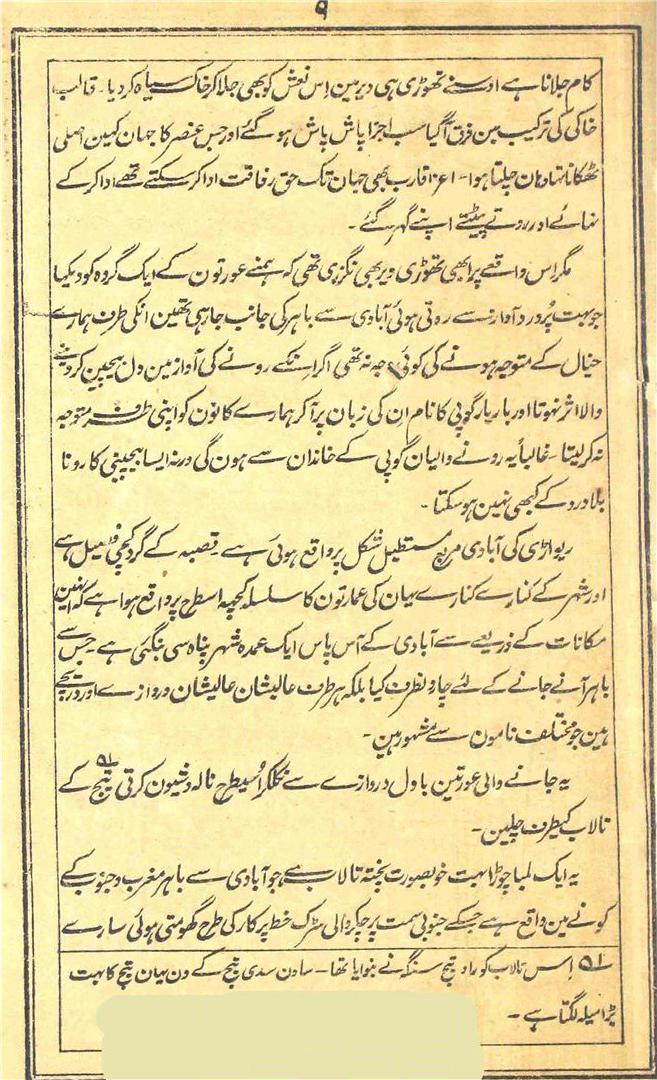 ۹
کام جلانا ہے اوسنے تھوڑی ہی دیر مین اِس نعش کو بھی جلا کر خاک سیاہ کر دیا۔ قالب
خاکی کی ترکیب مین فرق آگیا سب اجزا پاش پاش ہو گئے اور جس عنصر کا جہان کہین اصلی
ٹھکانا تہا وہان چلتا ہوا۔ اقارب بھی جہان تک حق رفاقت ادا کر سکتے تھے ادا کر کے
نہائے اور روتے پیٹتے اپنے گھر گئے۔
مگر اس واقعے پر ابھی تھوڑی دیر بھی نگزری تھی کہ ہمنے عورتون کے ایک گروہ کو دیکہا
جو بہت پُر درد آواز سے روتی ہوئی آبادی سے باہر کی جانب جارہی تھین انکی طرف ہمارے
خیال کے متوجہ ہونے کی کوئی وجہ نہ تھی اگر انکے رونے کی آواز مین دل بیچین کر دینے
والا اثر نہوتا اور بار بار گوپی کا نام ان کی زبان پر آکر ہمارے کانون کو اپنی طرف متوجہ
نہ کر لیتا۔ غالباً یہ رونے والیان گوپی کے خاندان سے ہون گی ورنہ ایسا بیچینی کا رونا
بلا درد کے کبھی نہین ہو سکتا۔
ریواڑی کی آبادی مربع مستطیل شکل پر واقع ہوئی ہے قصبہ کے گرد کچی فصیل ہے
اور شہر کے کنارے کنارے یہان کی عمارتون کا سلسلہ کچہہ اسطرح پر واقع ہوا ہے کہ انہین
مکانات کے ذریعے سے آبادی کے آس پاس ایک عمدہ شہر پناہ سی بنگئی ہے جس سے
باہر آنے جانے کے لئے چارونطرف کیا بلکہ ہر طرف عالیشان عالیشان دروازے اور دریچے
ہین جو مختلف نامون سے مشہور ہین۔
یہ جانے والی عورتین باول دروازے سے نکلکر اُسیطرح نالہ و شیون کرتی تیج ؎۱ کے
تالاب کیطرف چلین۔
یہ ایک لمبا چوڑا بہت خوبصورت پختہ تالاب ہے جو آبادی سے باہر مغرب و جنوب کے
کونے مین واقع ہے جسکے جنوبی سمت پر چکر والی سڑک خط پرکار کی طرح گھومتی ہوئی سارے
؎۱ اِس تالاب کو راو تیج سنگہ نے بنوایا تھا۔ ساون سدی تیج کے دن یہان تیج کا بہت
بڑا میلہ لگتا ہے۔